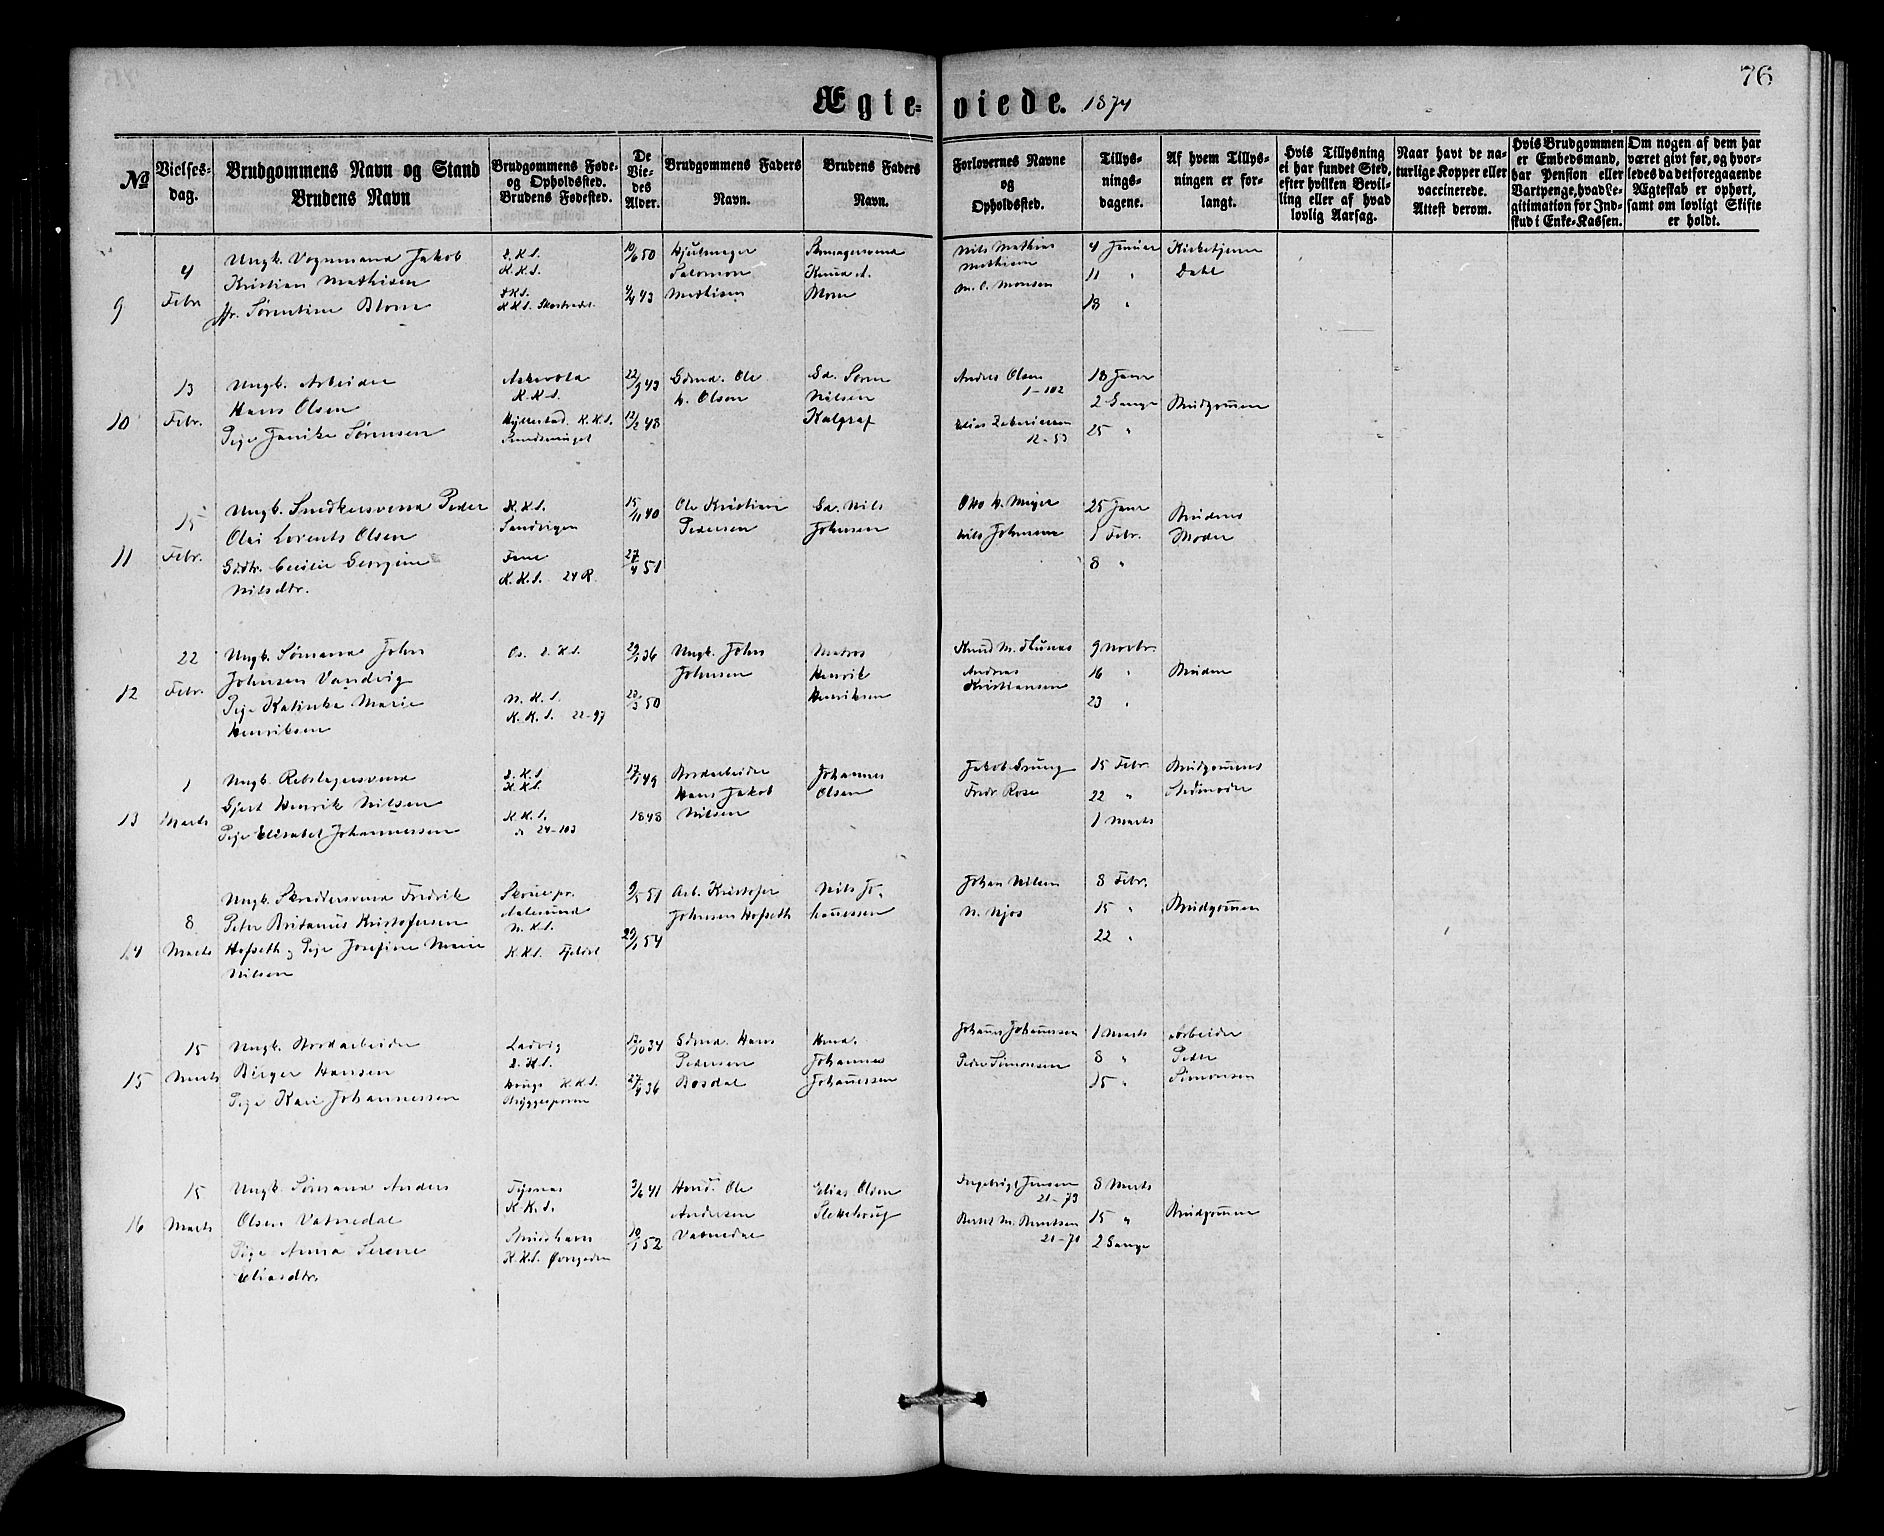 76
Ægteviede. 1874
No
Vielses-
dag.
Brudgommens Navn og Stand
Brudens Navn
Brudgommens Føde-
og Opholdssted.
Brudens Fødested.
De
Vie-
des
Alder.
Brudgommens Faders
Navn.
Brudens Faders
Navn.
Forlovernes Navne
og
Opholdssted.
Tillys-
nings-
dagene.
Af hvem Tillys-
ningen er for-
langt.
Hvis Tillysning
ei har fundet Sted,
efter hvilken Bevil-
ling eller af hvad
lovlig Aarsag.
Naar havt de na-
turlige Kopper eller
vaccinerede.
Attest derom.
Hvis Brudgommen
er Embedsmand,
har Pension eller
Vartpenge, hvad Le-
gitimation for Ind-
skud i Enke-Kassen.
Om nogen af dem har
været givt før, og hvor-
ledes da det foregaaende
Ægteskab er ophørt,
samt om lovligt Skifte
er holdt.
9
4
Febr
Ungk. Vognmand Jakob
Kristian Mathisen
Fr. Sørentine Blom
D.K.S.
K.K.S.
D.K.S.
K.K.S.
10/6 50
43
Hjulmager
Salomon
Mathisen
Knud A.
Blom
Nils Mathias
Mathisen
M. C. Monsen
4 Januar
11 "
18 "
Kirketjener
Dahl
10
13
Febr.
Ungk. Arbeider
Hans Olsen
Pige Janike Sørensen
Askevold
K.K.S.
Hyllestad K.K.S.
22/9 43
12/2 48
Gdmd. Ole
H. Olsen
Gd. Søren
Nilsen
Kalgraf
Andreas Olsen
1-102
Elias Zakariassen
12-53
18 Janr
2 Gange
25 "
Brudgommen
11
15
Febr.
Ungk. Snedkersvend Peder
Olai Lorents Olsen
Gdtr. Cecilie Georgine
Nilsdtr.
K.K.S.
Sandvigen
Fane
K.K.S. 24 R.
15/11 40
27/4 51
Ole Kristian
Pedersen
Gd. Nils
Johnsen
Otto H. Meyer
Nils Johnsen
25 Janr
1 Febr.
8 "
Brudens
Moder
12
22
Febr.
Ungk. Sømand John
Johnsen Vandvig
Pige Katinka Marie
Henriksen
Os. D.K.S.
N.K.S.
K.K.S. 22-97
29/1 36
23/3 50
Ungk. John
Johnsen
Matros
Henrik
Henriksen
Knud M.
Andreas
Kristiansen
9 Novbr.
16 "
23 "
Bruden
13
1
Marts
Ungk. Rebslagersvend
Gjert Henrik Nilsen
Pige Elisabet Johannessen
D.K.S.
K.K.S.
K.K.S.
24-103
17/1 49
1848
Bordarbeider
Hans Jakob
Nilsen
Johannes
Olsen
Jakob Grung
Fredr Rose
15 Febr.
22 "
1 Marts
Brudgommens
Stedmoder
14
8
Marts
Ungk. Skreddersvend Fredrik
Peter Britanus Kristofersen
Hofseth & Pige Josefine Marie
Nilsen
Aalesund
N.K.S.
K.K.S. Fjeldet
9/5 51
29/1 54
Arb. Kristofer
Johnsen Hofseth
Nils Jo-
hannessen
Johan Nilsen
N. Njøs
8 Febr.
15 "
22 "
Brudgommen
15
15
Marts
Ungk. Bordarbeider
Birger Hansen
Pige Kari Johannessen
Ladvig
D.K.S.
Haugs K.K.S.
12/10 34
27/4 36
Gdmd. Hans
Pedersen
Bosdal
Hmd.
Johannes
Johannessen
Johannes Johannessen
Peder Simonsen
1 Marts
8 "
15 "
Arbeider
Peder
Simonsen
16
15
Marts
Ungk. Sømand Anders
Olsen Vatnedal
Pige Anna Serene
Eliasdtr.
Tysnæs
K.K.S.
K.K.S. Øvregaden
3/6 41
10/1 52
Hmd. Ole
Andersen
Vatnedal
Elias Olsen
Ingebrigt Jensen
21-73
Bertel M. Berntsen
21-71
8 Marts
15 "
2 Gange
Brudgommen